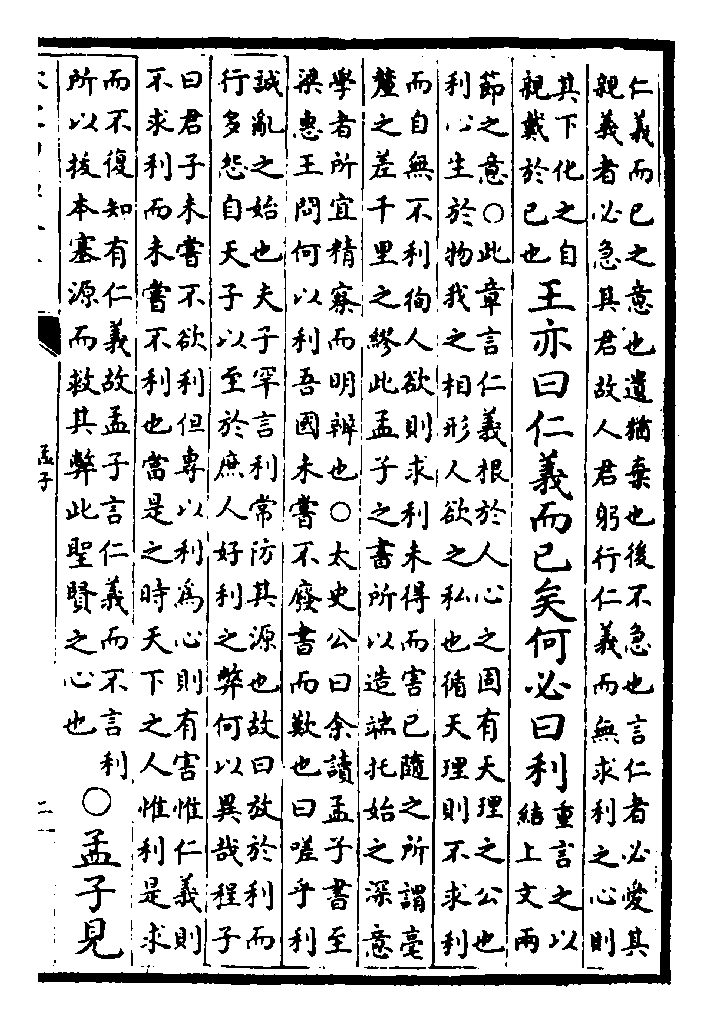 仁義而已之意也遺猶棄也後不急也言仁者必愛其
親義者必急其君故人君躬行仁義而無求利之心則
其下化之自
親戴於已也
王亦曰仁義而已矣何必曰利
重言之以
結上文兩
節之意○此章言仁義根於人心之固有天理之公也
利心生於物我之相形人欲之私也循天理則不求利
而自無不利徇人欲則求利未得而害已隨之所謂毫
釐之差千里之繆此孟子之書所以造端托始之深意
學者所宜精察而明辨也○太史公曰余讀孟子書至
梁惠王問何以利吾國未嘗不廢書而歎也曰嗟乎利
誠亂之始也夫子罕言利常防其源也故曰放於利而
行多怨自天子以至於庶人好利之弊何以異哉程子
曰君子未嘗不欲利但專以利爲心則有害惟仁義則
不求利而未嘗不利也當是之時天下之人惟利是求
而不復知有仁義故孟子言仁義而不言利
所以拔本塞源而救其弊此聖賢之心也
○孟子見
孟子
二